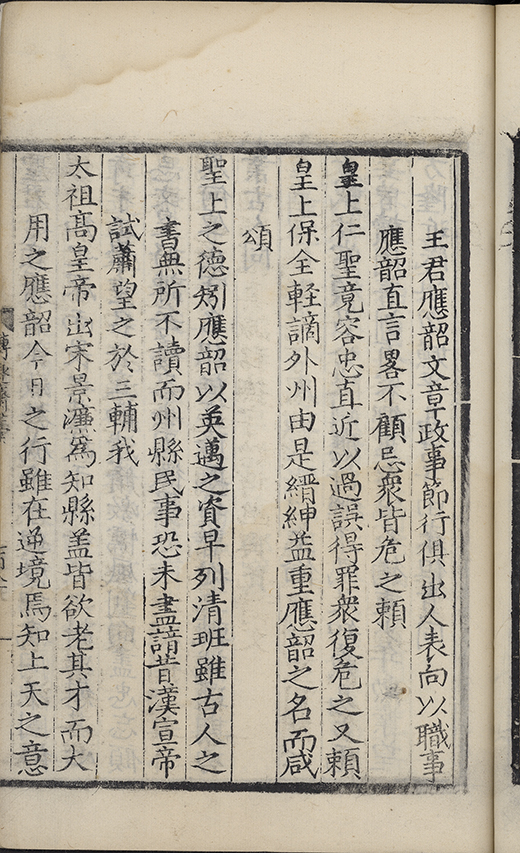 王君應韶文章政事節行俱出人表向以職事
應韶直言畧不顧忌衆皆危之頼
皇上仁聖竟容忠直近以過誤得罪衆復危之又頼
皇上保全軽謫外州由是縉紳益重應韶之名而咸
頌
聖上之德矧應韶以英邁之資早列清班雖古人之
書無所不讀而州縣民事恐未盡諳昔漢宣帝
試蕭望之於三輔我
太祖高皇帝出宋景濂爲知縣盖皆欲老其才而大
用之應韶今日之行雖在逆境焉知上天之意